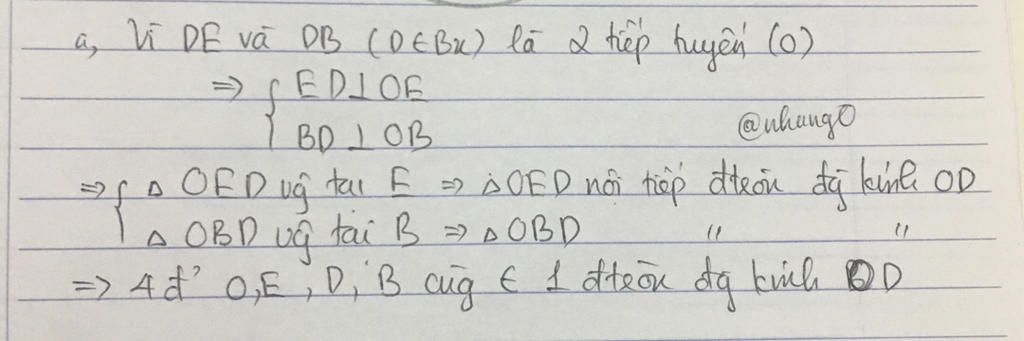 a, Vì DE và DB (D∈Bx) là 2 tiếp tuyến (O)
⇒ { ED⊥OE
BD⊥OB
@nhung0
⇒ { △ OED vg̃ tại E ⇒ △OED nội tiếp đtròn đg̃ kính OD
△ OBD vg̃ tại B ⇒ △OBD " "
⇒ 4 đ' O, E, D, B cùg ∈ 1 đtròn đg kính OD